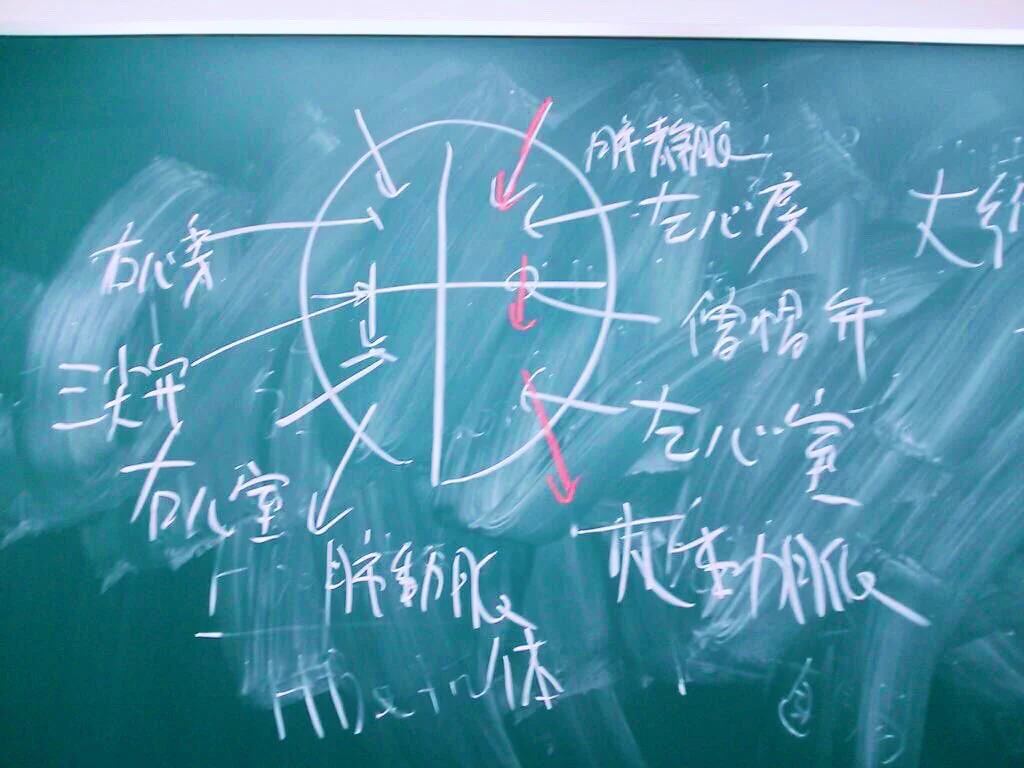 肺静脈
左心房
右心房
大
僧帽弁
三尖弁
左心室
右心室
大動脈
肺動脈
体